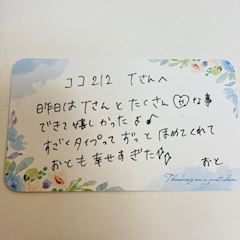 ココ212 Tさんへ
昨日はTさんとたくさんHな事
できて嬉しかったよ♪
すごくタイプってずっとほめてくれて
おとも幸せすぎた
おと